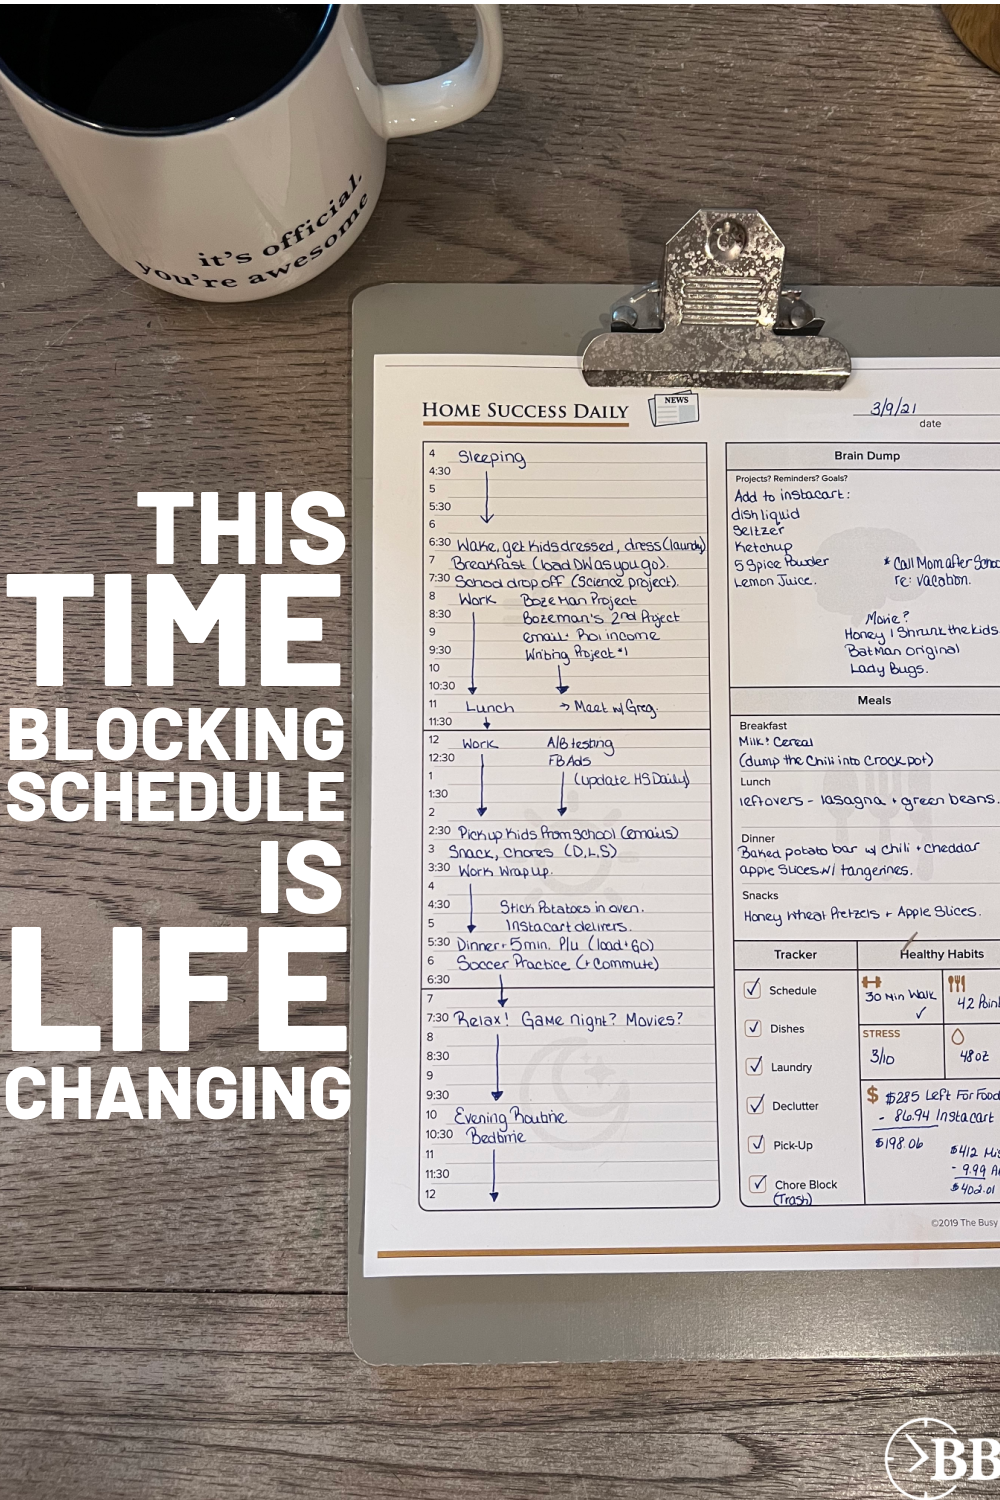 it's official.
you're awesome
THIS
TIME
BLOCKING
SCHEDULE
IS
LIFE
CHANGING
HOME SUCCESS DAILY
NEWS
3/9/21
date
4 Sleeping
4:30
5
5:30
6
6:30 Wake, get kids dressed, dress (laundry)
7 Breakfast (load DW as you go).
7:30 School drop off (Science project).
8 Work Bozeman Project
8:30 Bozeman's 2nd Project
9 email + Roi income
9:30 Writing Project #1
10
10:30
11 Lunch → Meet w/ Greg.
11:30
12 Work A/B testing
12:30 FB Ads
1 (update HS Daily)
1:30
2
2:30 Pickup Kids From School (emails)
3 Snack, Chores (D,L,S)
3:30 Work Wrap up.
4
4:30 Stick Potatoes in oven.
5 Instacart delivers.
5:30 Dinner + 5 min. P/u (load + GO)
6 Soccer Practice (+ Commute)
6:30
7
7:30 Relax! Game night? Movies?
8
8:30
9
9:30
10 Evening Routine
10:30 Bedtime
11
11:30
12
Brain Dump
Projects? Reminders? Goals?
Add to instacart:
dish liquid
Seltzer
Ketchup
5 Spice Powder
Lemon Juice.
* Call Mom after
re: vacation.
Movie?
Honey I Shrunk the kids
Batman original
Lady Bugs.
Meals
Breakfast
Milk + Cereal
(dump the Chili into Crockpot)
Lunch
leftovers - lasagna + green beans.
Dinner
Baked potato bar w/ chili + cheddar
apple slices w/ tangerines.
Snacks
Honey Wheat Pretzels + Apple Slices.
Tracker
Schedule
Dishes
Laundry
Declutter
Pick-Up
Chore Block
(Trash)
Healthy Habits
30 Min Walk
42
STRESS
3/10
48oz
$ $285 Left For Food
- 86.94 Instacart
$198.06
$412
- 9.99
$402.01
©2019 The Busy
BB